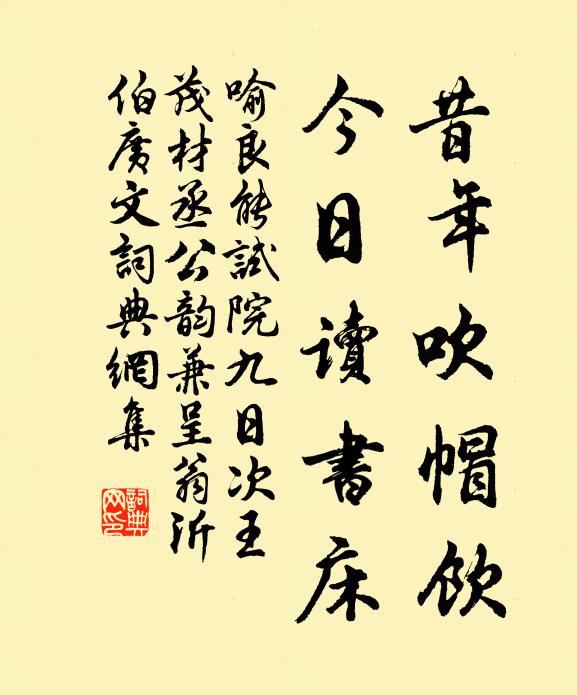 昔年吹帽飲
今日讀書床
喻良能試院九日次王
茂材丞公韵兼呈翁沂
伯廣文詞典網集
詞典
网印